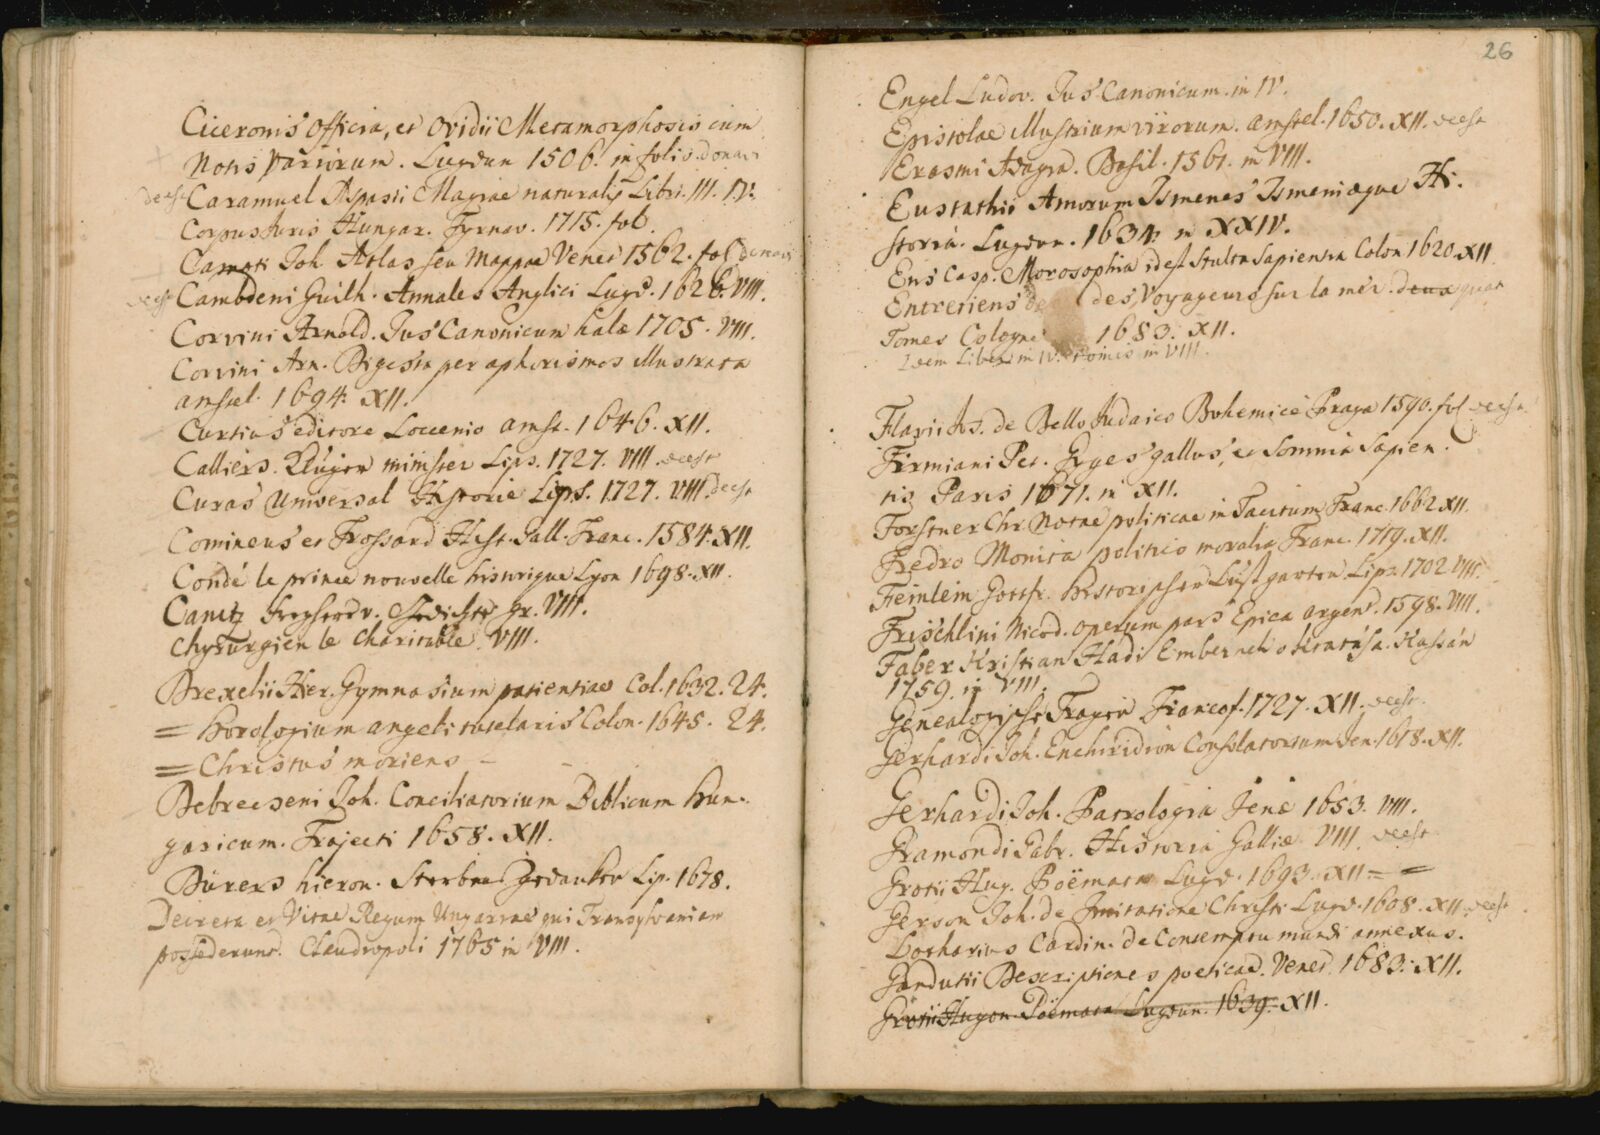 Ciceronis Officia, et Ovidii Metamorphosis cum
Notis Variorum. Lugdun 1506. in folio. donavi
deest Caramuel Dspasii Magiae naturalis Libri. III. IV.
Corpus Juris Hungar. Tyrnav. 1715. fol.
Camoti Joh Atlas seu Mappae Venet 1562. fol donavi
deest Cambdeni Guilh. Annales Anglici Lugd. 1626. VIII.
Corvini Arnold. Jus Canonicum halae 1705. VIII.
Corvini Arn. Digesta per aphorismos illustrata
amstel. 1694. XII.
Curtius editore Loccenio amst. 1646. XII.
Calliers. Kluger minister Lips. 1727. VIII. deest
Curas Universal Historie Lips. 1727. VIII. deest
Comineus et Frossard Hist. Gall. Franc. 1584. XII.
Condé le prince nouvelle historique Lyon 1698. XII.
Canitz Freyherr v. Gedichte gr. VIII.
Chyrurgien le charitable. VIII.
Drexelii Hier. Gymnasium patientiae Col. 1632. 24.
= Horologium angeli tutelaris Colon. 1645. 24.
= Christus moriens –
Debreczeni Joh. Conciliatorium Biblicum hun-
garicum. Trajecti 1658. XII.
Dürers hieron. Sterbens Gedanken Lip. 1678.
Decreta et Vitae Regum Ungariae qui Transylvaniam
possederunt. Claudiopoli 1765 in VIII.
26
Engel Ludov. Jus Canonicum. in IV.
Epistolae illustrium virorum. amstel. 1650. XII. deest
Erasmi Adagia. Basil. 1561. in VIII.
Eustathii Amorum Ismenes Ismeniaeque Hi-
storia. Lugdun. 1634. in XXIV.
Ens Casp. Morosophia idest Stulta Sapientia Colon 1620. XII
Entretiens de des Voyageurs sur la mer. deux quat
Tomes Cologne 1683. XII.
Idem Liber in IV. tomis in VIII.
Flavii Jos. de Bello Judaico Bohemice Praga 1590. fol deest
Firmiani Pet. Gyges gallus, et Somnia Sapien-
tis Paris 1671. in XII.
Forstner Chr. Notae politicae in Tacitum Franc. 1662 XII.
Fredro Monita politico moralia Franc. 1719. XII.
Feinlein Gottfr. historischer Lustgarten Lips. 1702 VIII.
Frischlini Nicod. operum pars Epica argent. 1598. VIII.
Faber Kristian Hadi Embernek oktatása. Kassán
1759. in VIII.
Genealogische Fragen Francof. 1727. XII. deest
Gerhardi Joh. Enchiridion Consolatorium Jen. 1618. XII.
Gerhardi Joh. Patrologia Jenae 1653. VIII.
Gramondi Gabr. Historia Galliae VIII. deest
Grotii Hug. Poëmata Lugd. 1693. XII = =
Gerson Joh. de Imitatione Christi Lugd. 1608. XII. deest
Lotharius Cardin. de Contemptu mundi annexus.
Gandutii Descriptiones poeticae. Venet. 1683. XII.
Grotii Hugon. Poëmata Lugdun. 1639. XII.